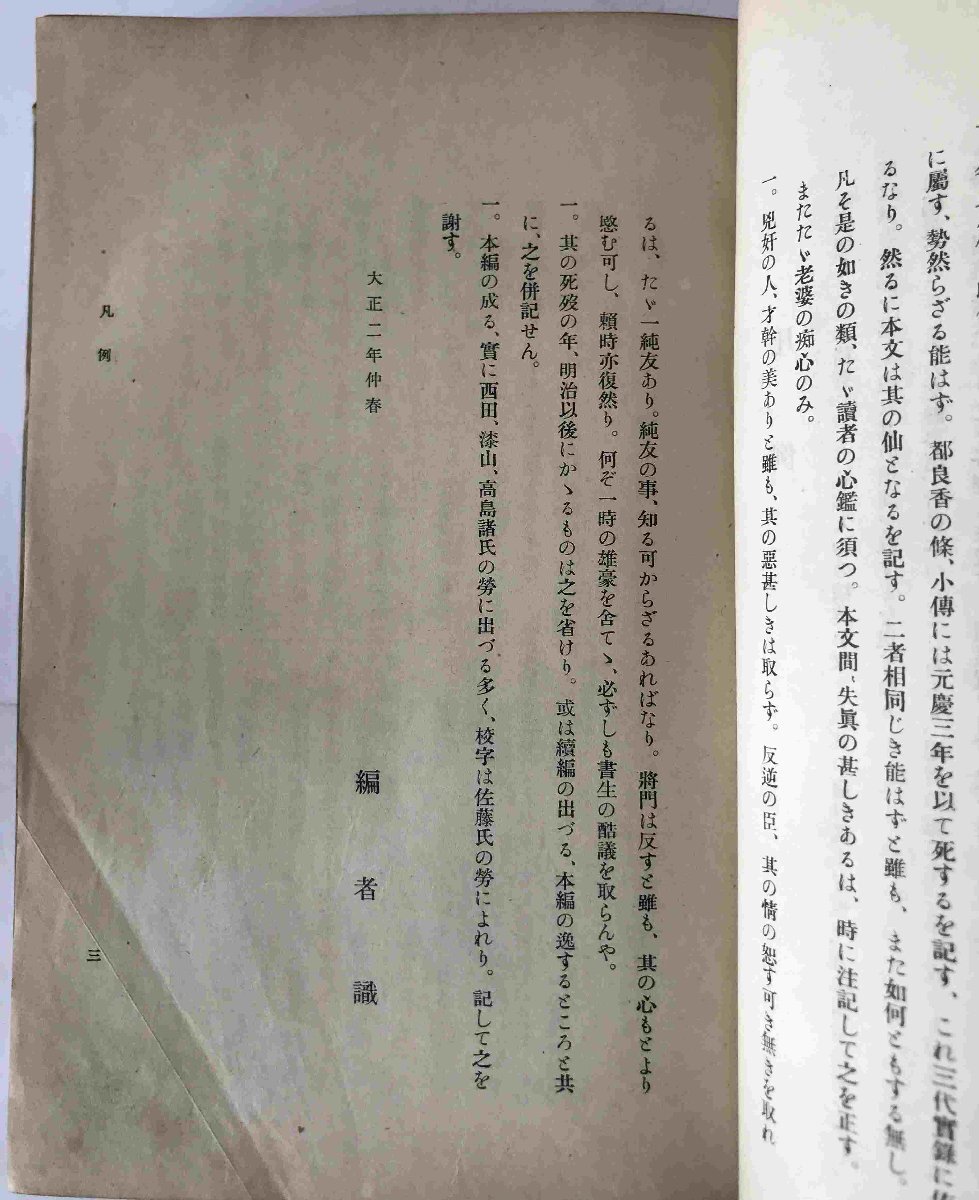 に屬す、勢然らざる能はず。都良香の條、小傳には元慶三年を以て死するを記す、これ三代實錄に
るなり。然るに本文は其の仙となるを記す。二者相同じき能はずと雖も、また如何ともする無し。
凡そ是の如きの類、たゞ讀者の心鑑に須つ。本文間、失眞の甚しきあるは、時に注記して之を正す。
またたゞ老婆の痴心のみ。
一。兇奸の人、才幹の美ありと雖も、其の惡甚しきは取らず。反逆の臣、其の情の恕す可き無きを取れ
るは、たゞ一純友あり。純友の事、知る可からざるあればなり。將門は反すと雖も、其の心もとより
愍む可し、賴時亦復然り。何ぞ一時の雄豪を舍てゝ、必ずしも書生の酷議を取らんや。
一。其の死歿の年、明治以後にかゝるものは之を省けり。或は續編の出づる、本編の逸するところと共
に、之を併記せん。
一。本編の成る、實に西田、漆山、高島諸氏の勞に出づる多く、校字は佐藤氏の勞によれり。記して之を
謝す。
大正二年仲春
編者識
凡例
三